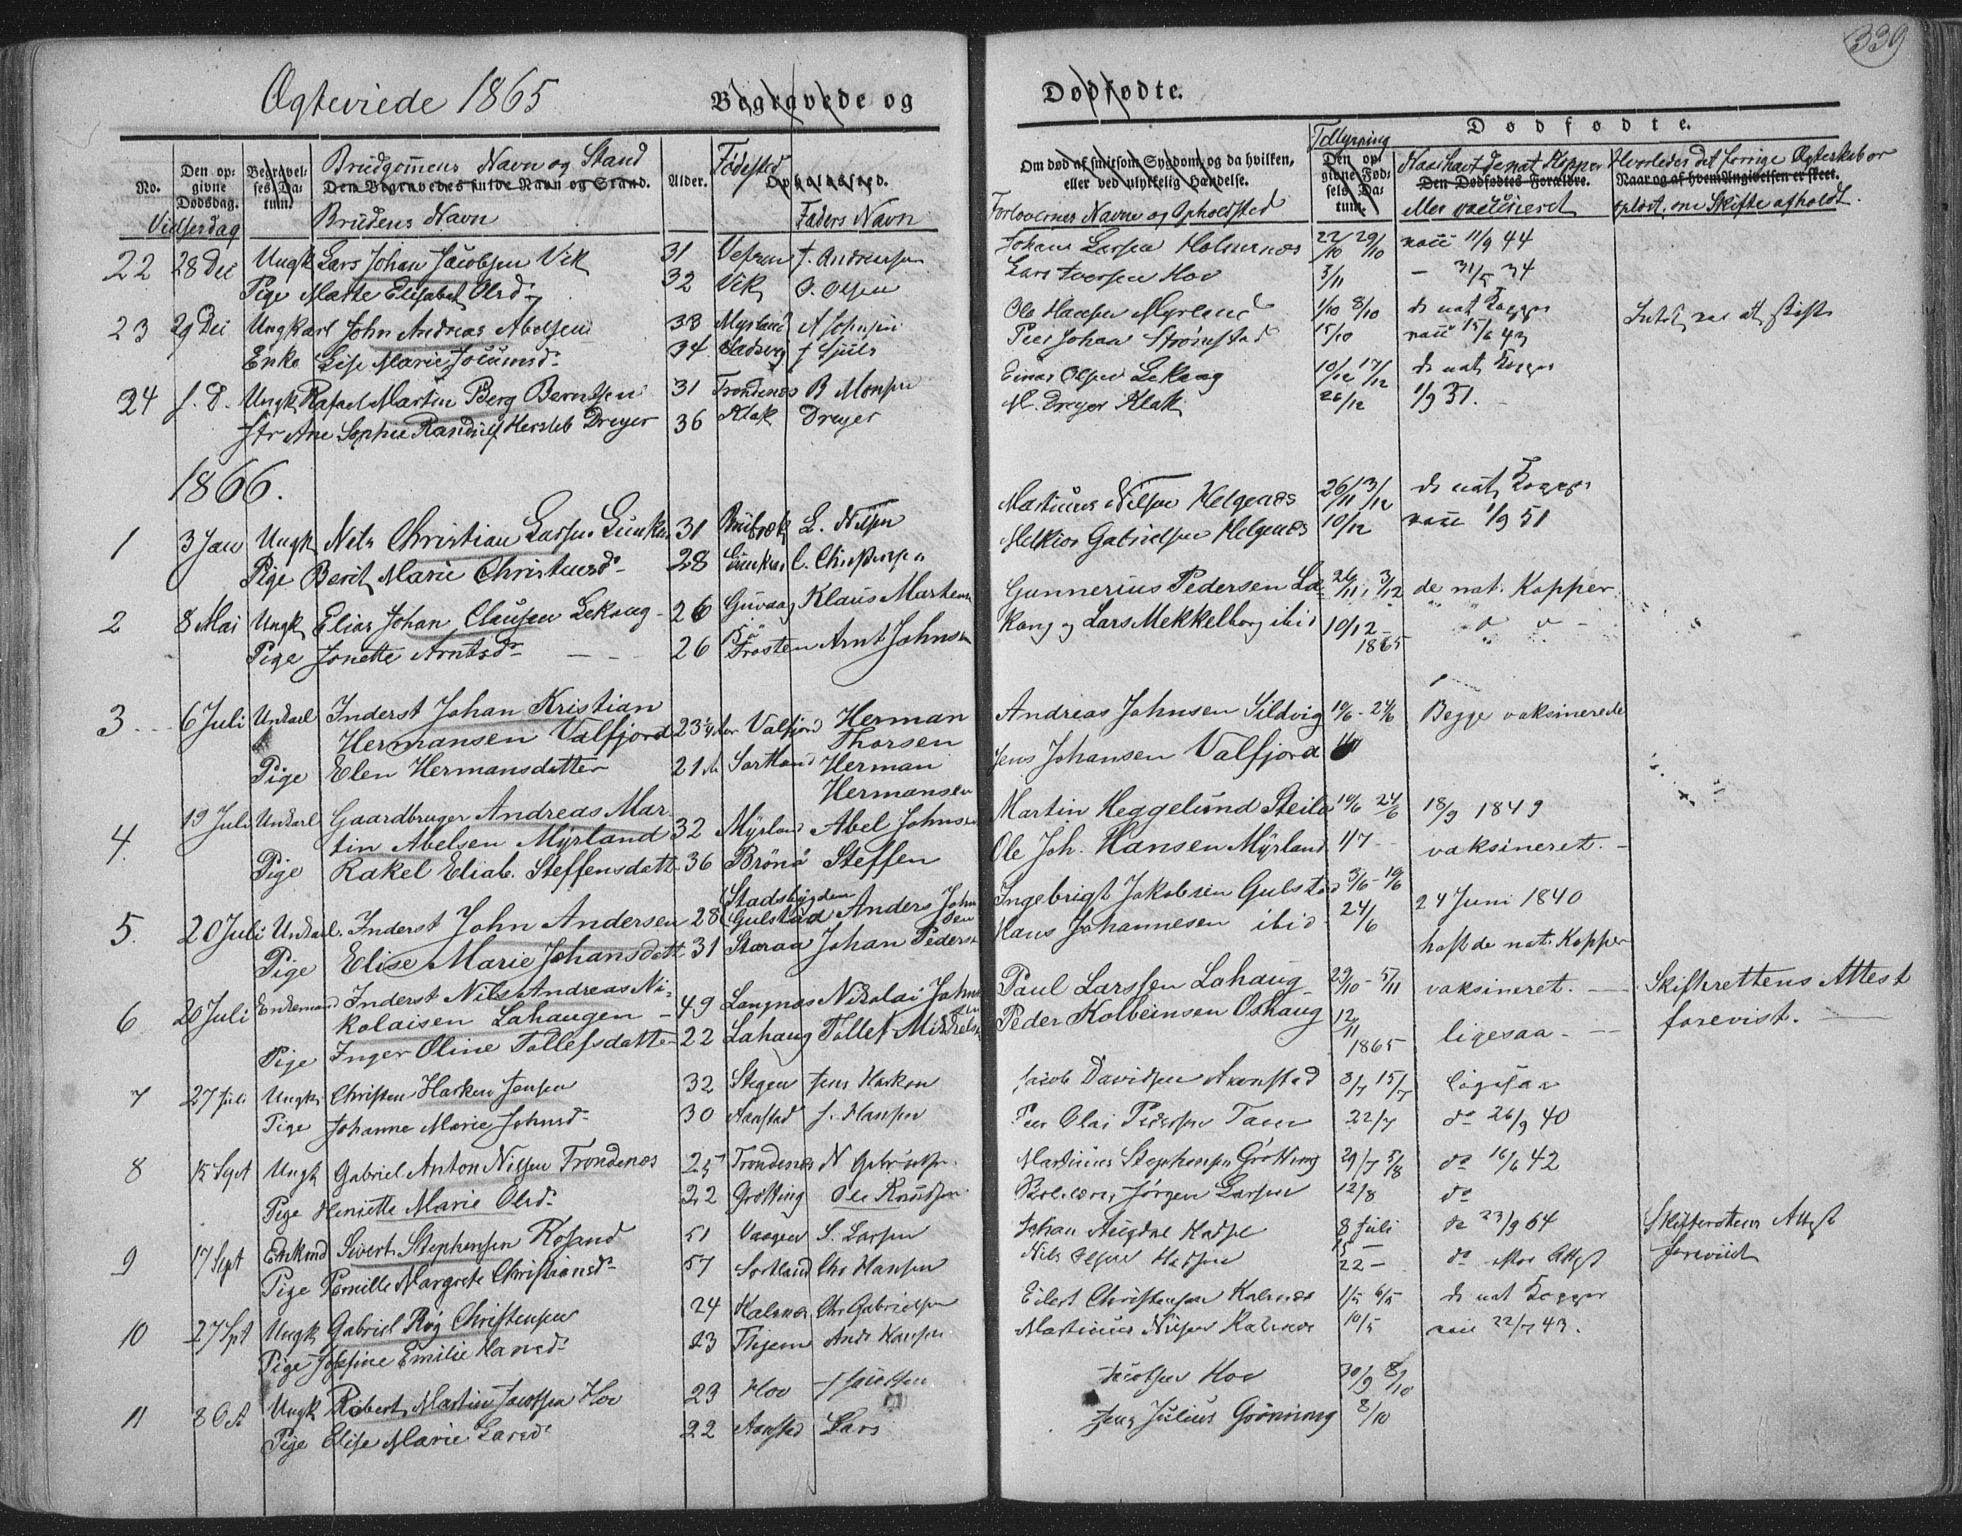 339
Ægteviede 1865 Begravede og Dødfødte.
Dødfødte.
No. Den opgivne Dødsdag. Begravelses-Datum. Den Begravedes fulde Navn og Stand. Alder. Opholdssted. Om død af smitsom Sygdom, og da hvilken, eller ved ulykkelig Hændelse. Den opgivne Fødsels Datum. Den Dødfødtes Forældre. Naar og af hvem Angivelsen er skeet.
Vidselsdag Brudgommens Navn og Stand Brudens Navn Fødested Faders Navn Forlovernes Navne og Opholdsted Tillysning Naar havt de nat Kopper eller vaccineret Hvorledes det forrige Ægteskab er opløst, om Skifte afholdt.
22 28 Dec Ungk Lars Johan Jacobsen Vik 31 J. Andreasen Johan Larsen Holmernæs 22/10 29/10 vacc 11/9 44
Pige Marte Elisabet Olsd 32 Vik O. Olsen Lars Iversen Hov 3/11 - 31/5 34
23 29 Dec Ungkarl John Andreas Abelsen 33 Myrland A Johnsen Ole Hansen Myrland 1/10 8/10 d nat Kopper
Enke Lise Marie Jocumsd 34 Peer Johan Strømstad 15/10 vacc 15/6 43
24 s. D. Ungk Rafael Martin Berg Berntsen 31 Trondenæs B Monsen Einar Olsen Lekang 10/12 17/12 d nat Kopper
Jfr Ane Sophie Randulf Hersleb Dreyer 36 Klak Dreyer M. Dreyer Klak 26/12 1/9 31.
1866.
1 3 Jan Ungk Nils Christian Larsen 31 L. Nilsen Martinus Nilsen Helgenæs 26/11 3/12 d nat Kopper
Pige Berit Marie Christensd 28 C. Christensen Melkior Gabrielsen Helgenæs 10/12 vacc 1/9 51
2 8 Mai Ungk Elias Johan Clausen Lekang 26 Guvaag Klaus Martens Gunnerius Pedersen Le- 26/11, 3/12 de nat. Kopper.
Pige Jonette Arntsdr 26 Trosten Arnt Johnsen kang og Lars Mekkelborg ibid 10/12 1865
3 6 Juli Unkarl Inderst Johan Kristian Hermansen Valfjord 23 Valfjord Herman Thorsen Andreas Johnsen Sildvig 10/6 - 24/6 Begge vaksinerede
Pige Elen Hermansdatter 21 Sortland Herman Hermansen Jens Johansen Valfjord
4. 19 Juli Unkarl Gaardbruger Andreas Martin Abelsen Myrland 32 Myrland Abel Johnsen Martin Heggelund Steilo 10/6 24/6 18/9 1849
Pige Rakel Eliab. Steffensdatt 36 Brönö Steffen Ole Joh. Hansen Myrland 1/7 vaksineret.
5. 20 Juli Unkarl. Inderst John Andersen 28 Stadsbygden Gulstad Anders Johnsen Ingebrigt Jakobsen Gulstad 3/6 - 10/6 24 Juni 1840
Pige Elise Marie Johansdatt 31 Staraa Johan Peders Hans Johannesen ibid 24/6 haft de nat. Kopper
6 20 Juli Enkemand Inderst Nils Andreas Nikolaisen Lahaugen 49 Langnæs Nikolai Johnsen Paul Larssen Lahaug 29/10 - 5/11 vaksineret. Skifterettens Attest
Pige Inger Oline Tollefsdatter 22 Lahaug Tollef Mikkels Peder Kolbeinsen Oshaug 12/11 1865 ligesaa - forevist.
7 27 Juli Ungk Christen Harken Jensen 32 Stegen Jens Harkon Jacob Davidsen Aanstad 8/7 15/7 ligesaa
Pige Johanne Marie Johnsd 30 Aanstad J. Hansen Peer Olai Pedersen 22/7 do 26/9 40
8 15 Sept Ungk Gabriel Anton Nilsen Trondenæs 25 Trondenæs N Gabrielsen Martinus Stephensen Grøtting 29/7 5/8 do 16/6 42
Pige Henriette Marie Olsd 22 Grøtting Ole Knudsen Jørgen Larsen 12/8 do
9 17 Sept Enkmd Sivert Stephensen Rosand 51 Vaagen S. Larsen Johan 8 Juli do 23/9 64 Skifterettens Attest
Pige Pernille Margrete Christiansd 57 Sortland Chr Hansen Nils Olsen 15 - 22 - do Attest foreviist
10 27 Spt Ungk Gabriel Røg Christensen 24 Kalsnæs Chr Gabrielsen Eilert Christensen Kalsnæs 1/5 6/5 d nat Kopper
Pige Josefine Emilie Hansd 23 And Hansen Martinus Nilsen Kalsnæs 10/5 vacc 22/7 43.
11 8 Oct Ungk Robert Martin Jacobsen Hov 23 Hov Jacobsen Hov 30/9 8/10
Pige Elise Marie Larsd 22 Aanstad Lars Jens Julius Grønning 8/10